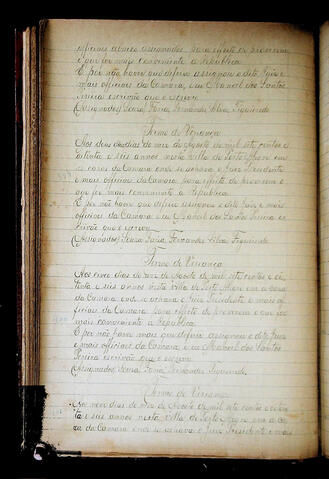 officiaes abaixo assignados para effeito de proverem
o que for mais conveniente a Republica
E por não haver que deferir assignou o dito Juiz e
mais officiaes da Camara, eu Manoel dos Santos
Pereira escrivão que o escrevi
(Assignados) Souza, Faria, Fernandes, Silva, Figueiredo
Termo de Vereança
Aos dous dias do mez de Agosto de mil sete centos e
oitenta e seis annos nesta Villa de Porto Alegre em
as casas da Camara onde se achava o Juiz Presidente
e mais officiaes da Camara para effeito de proverem o
que for mais conveniente a Republica
E por não haver que deferir assignou o dito Juiz e mais
officiaes da Camara eu Manoel dos Santos Pereira es
crivão que o escrevi
(Assignados) Souza, Faria, Fernandes, Silva, Figueiredo
Termo de Vereança
Aos cinco dias do mez de Agosto de mil sete centos e oi
tenta e seis annos nesta Villa de Porto Alegre em a casa
da Camara onde se achava o Juiz Presidente e mais of
ficiaes da Camara para effeito de proverem o que for
mais conveniente a Republica
E por não haver mais que deferir assignou o dito Juiz
e mais officiaes da Camara e eu Manoel dos Santos
Pereira escrivão que o escrevi
(Assignados) Souza, Faria, Fernandes, Figueiredo
Termo de Vereança
Aos nove dias do mez de Agosto de mil sete centos e oiten
ta e seis annos nesta Villa de Porto Alegre em a ca
za da Camara onde se achava o Juiz Presidente e mais